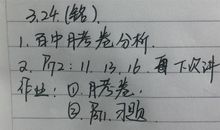 3.24.(铭)
1. 百中月考卷分析.
2. P72: 11. 13. 16. 下次讲
作业: ①. 月考卷.
②. P71. 习题